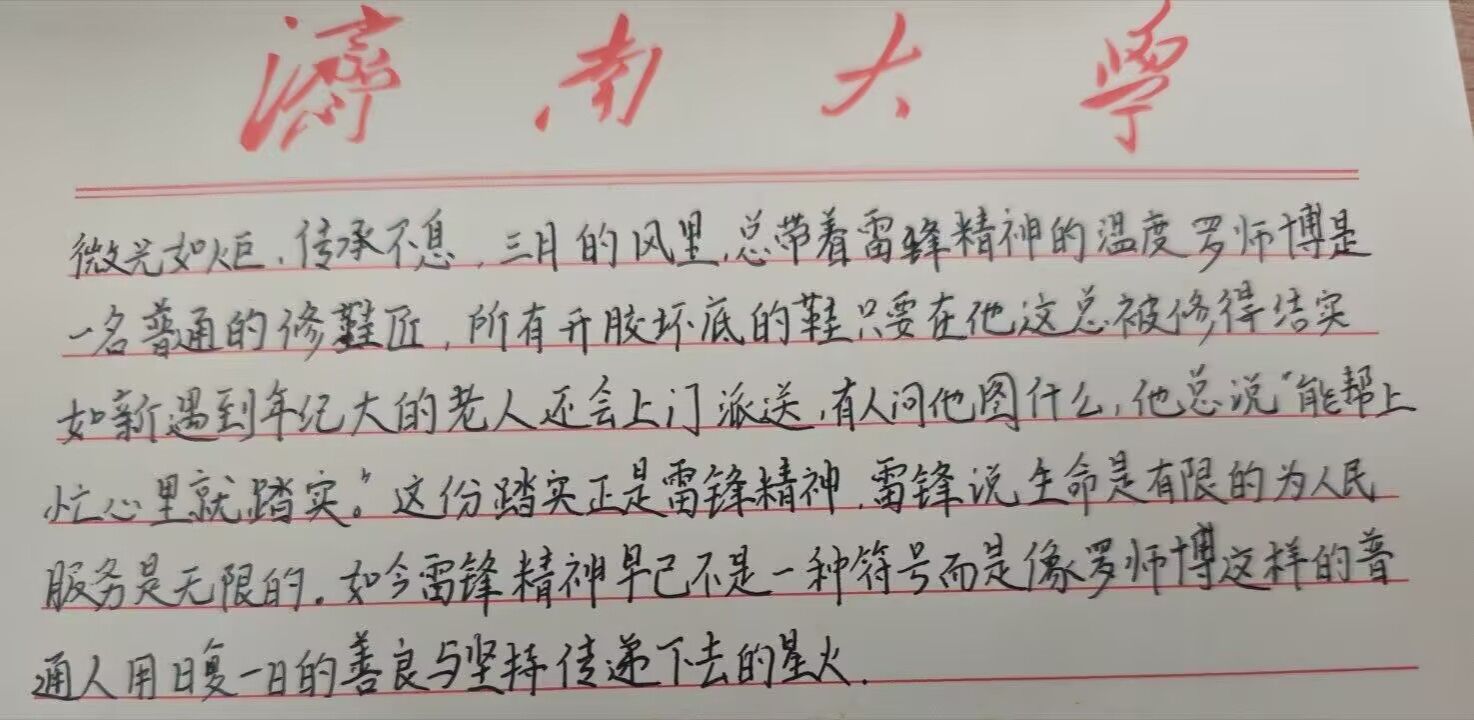 濟南大學
微光如炬、传承不息，三月的风里，总带着雷锋精神的温度 罗师博是
一名普通的修鞋匠，所有开胶坏底的鞋只要在他这总被修得结实
如新遇到年纪大的老人还会上门派送，有人问他图什么，他总说“能帮上
忙心里就踏实。”这份踏实正是雷锋精神，雷锋说生命是有限的为人民
服务是无限的．如今雷锋精神早已不是一种符号而是像罗师博这样的普
通人用日复一日的善良与坚持传递下去的星火．